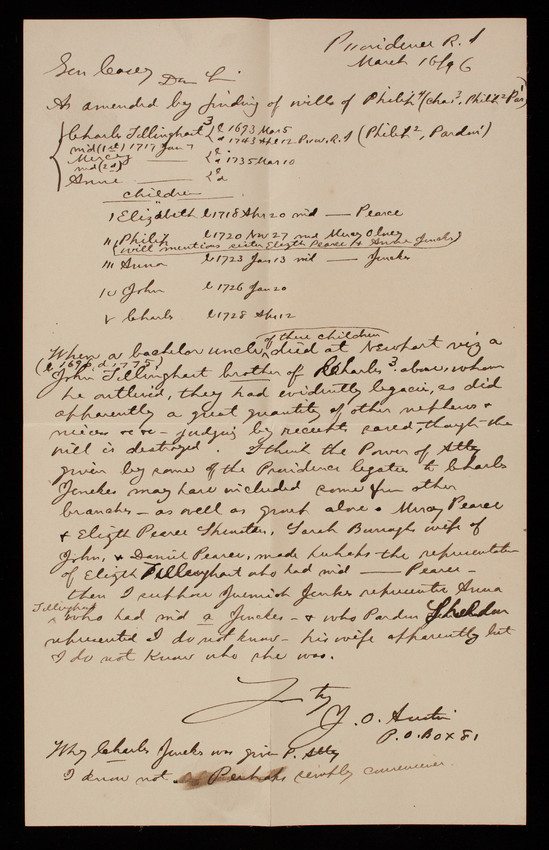 Providence R. I
March 16/96
Gen Casey
Dear Sir
As amended by finding of wills of Philip4 (Cha3, Philip2 Par1)
Charles Tillinghast3 b 1693 Mar 5
d 1743 Apl 12 Prov. R. I (Philip2, Pardon1)
md (1st) 1717 Jan 7
Mercy —— b
d 1735 Mar 10
md (2d)
Anne —— b
d
children
I Elizabeth b 1718 Apr 20 md — Pearce
II Philip b 1720 Nov 27 md Mercy Olney
(will mentions sister Elizth Pearce & Anna Jenckes)
III Anna b 1723 Jan 13 md — Jenckes
IV John b 1726 Jan 20
V Charles b 1728 Apr 12
When a bachelor uncle of these children died at Newport viz a
(b 1690, d. 1775)
John Tillinghast brother of Charles3 above, whom
he outlived, they had evidently legacies, as did
apparently a great quantity of other nephews &
nieces &c &c — judging by receipts saved though the
will is destroyed. I think the Power of Atty
given by some of the Providence legatees to Charles
Jenckes may have included some from other
branches — as well as group above. Mercy Pearce
& Elizth Pearce Spinster, Sarah Burroughs wife of
John, & Daniel Pearce, made perhaps the representation
of Elizth Tillinghast who had md — Pearce —
then I suppose Jeremiah Jenckes represents Anna
Tillinghast who had md a Jenckes — & who Pardon Sheldon
represented I do not know — his wife apparently but
I do not know who she was.
Yrs try
J. O. Austin
P. O. Box 81
Why Charles Jencks was given P. Atty
I know not. Perhaps simply convenience.